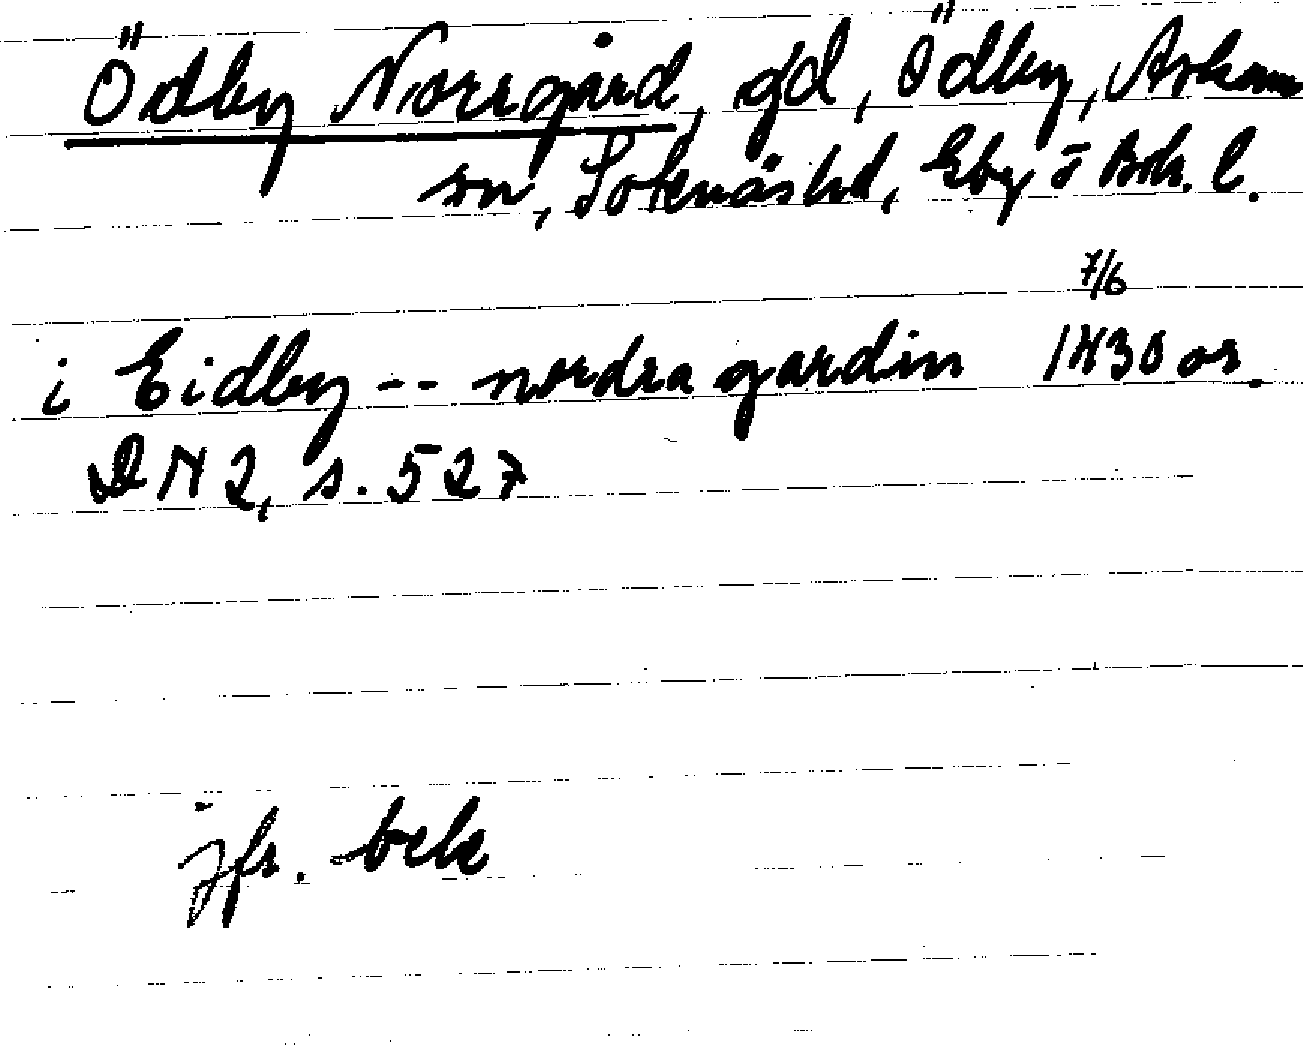 Ödby Norrgård, gd, Ödby, Askums
sn, Sotenäs hd, Gbg o Boh. l.
7/6
i Eidby -- nordra gardin 1430 or.
DN 2, s. 527
jfr. bebe